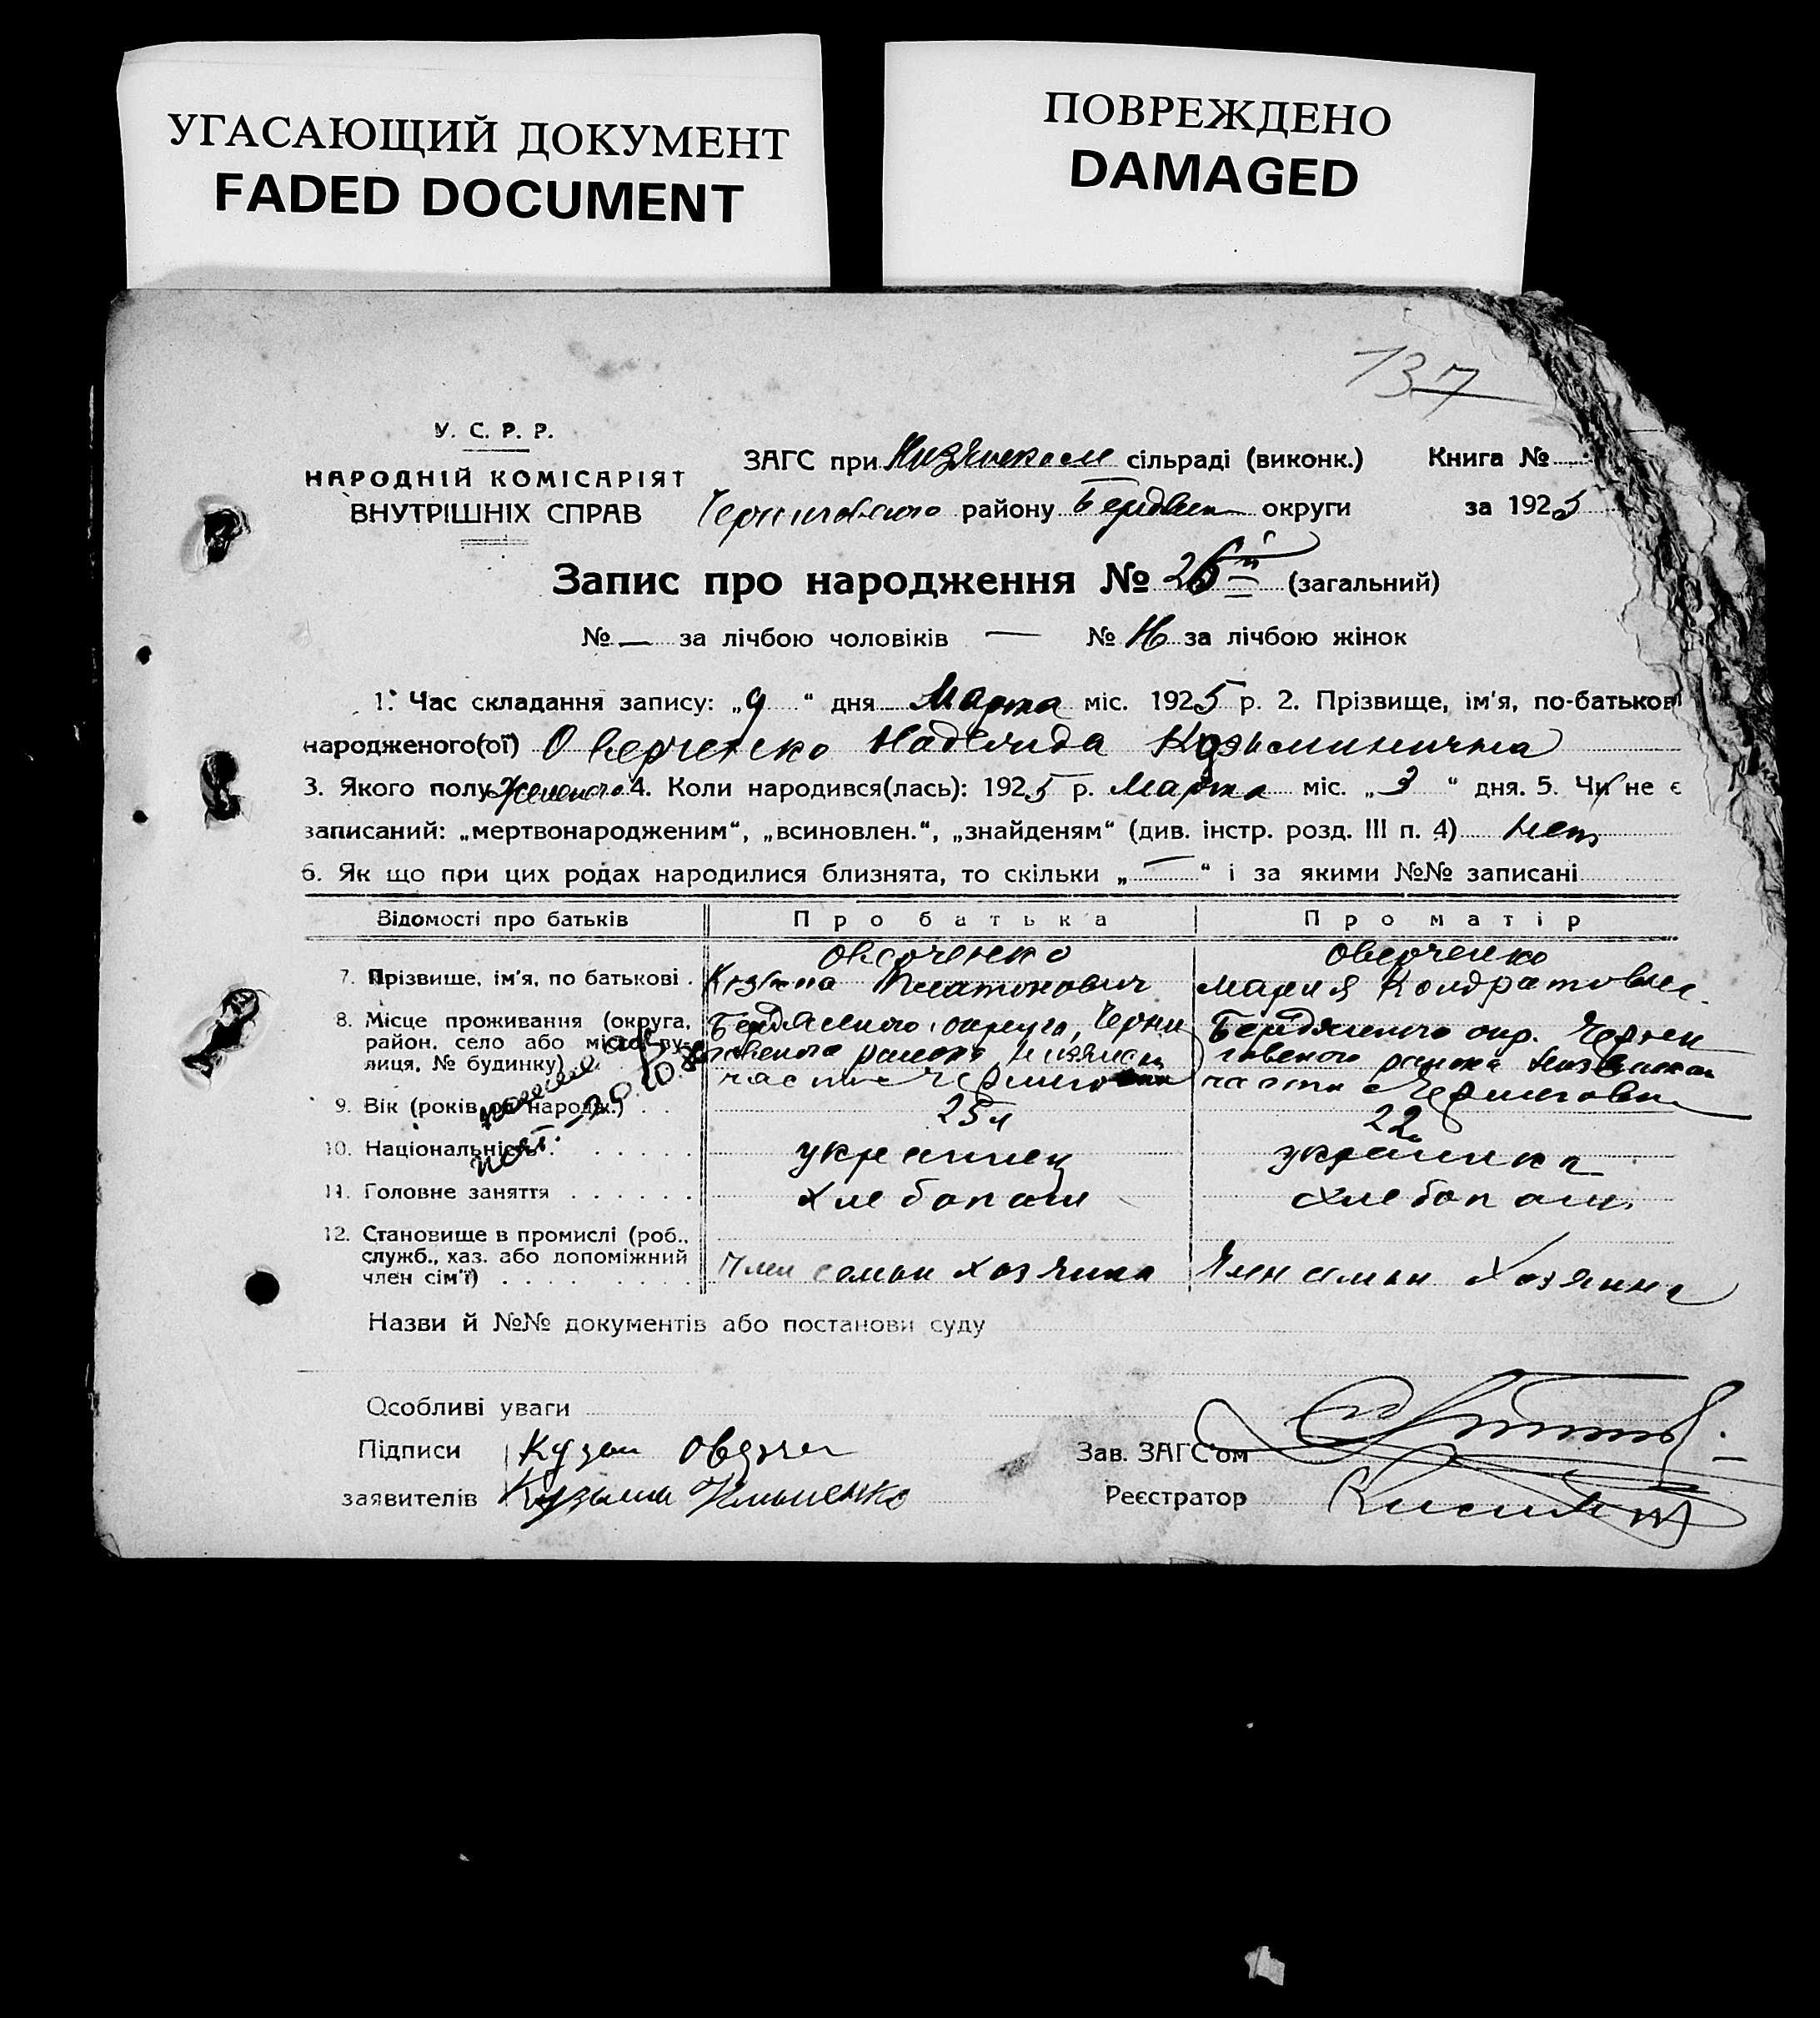 УГАСАЮЩИЙ ДОКУМЕНТ
FADED DOCUMENT
ПОВРЕЖДЕНО
DAMAGED
137
У. С. Р. Р.
НАРОДНІЙ КОМІСАРІЯТ
ВНУТРІШНІХ СПРАВ
ЗАГС при Низянском сільраді (виконк.) Книга №
району Бердян округи за 1925
Запис про народження № (загальний)
№ — за лічбою чоловіків — № 16 за лічбою жінок
1. Час складання запису: „9 “ дня Марта міс. 1925 р. 2. Прізвище, ім'я, по-батькові
народженого(ої) Оверченко Надежда Козьминична
3. Якого полу 4. Коли народився(лась): 1925 р. Марта міс. „3 “ дня. 5. Чи не є
записаний: „мертвонародженим“, „всиновлен.“, „знайденям“ (див. інстр. розд. III п. 4) нет
6. Як що при цих родах народилися близнята, то скільки „—“ і за якими №№ записані
Відомості про батьків Про батька Про матір
Оверченко Оверченко
7. Прізвище, ім'я, по батькові . Козьма Платонович Мария Кондратовна
8. Місце проживання (округа, Бердянского округа, Черни Бердянского окр. Черни
район, село або місто, ву- говского района Низянск говского района Низянская
лиця, № будинку) части Черниговки
9. Вік (років од народж.) . . 25 л 22
10. Національність . . . . . . украинец украинка
11. Головне заняття . . . . . . хлебопаш хлебопаш.
12. Становище в промислі (роб.,
служб., хаз. або допоміжний
член сім'ї) . . . . . . . . . Член семьи хозяина Член семьи хозяина
20.10.
Назви й №№ документів або постанови суду
Особливі уваги
Підписи Зав. ЗАГС'ом
заявителів Кузьма Реєстратор